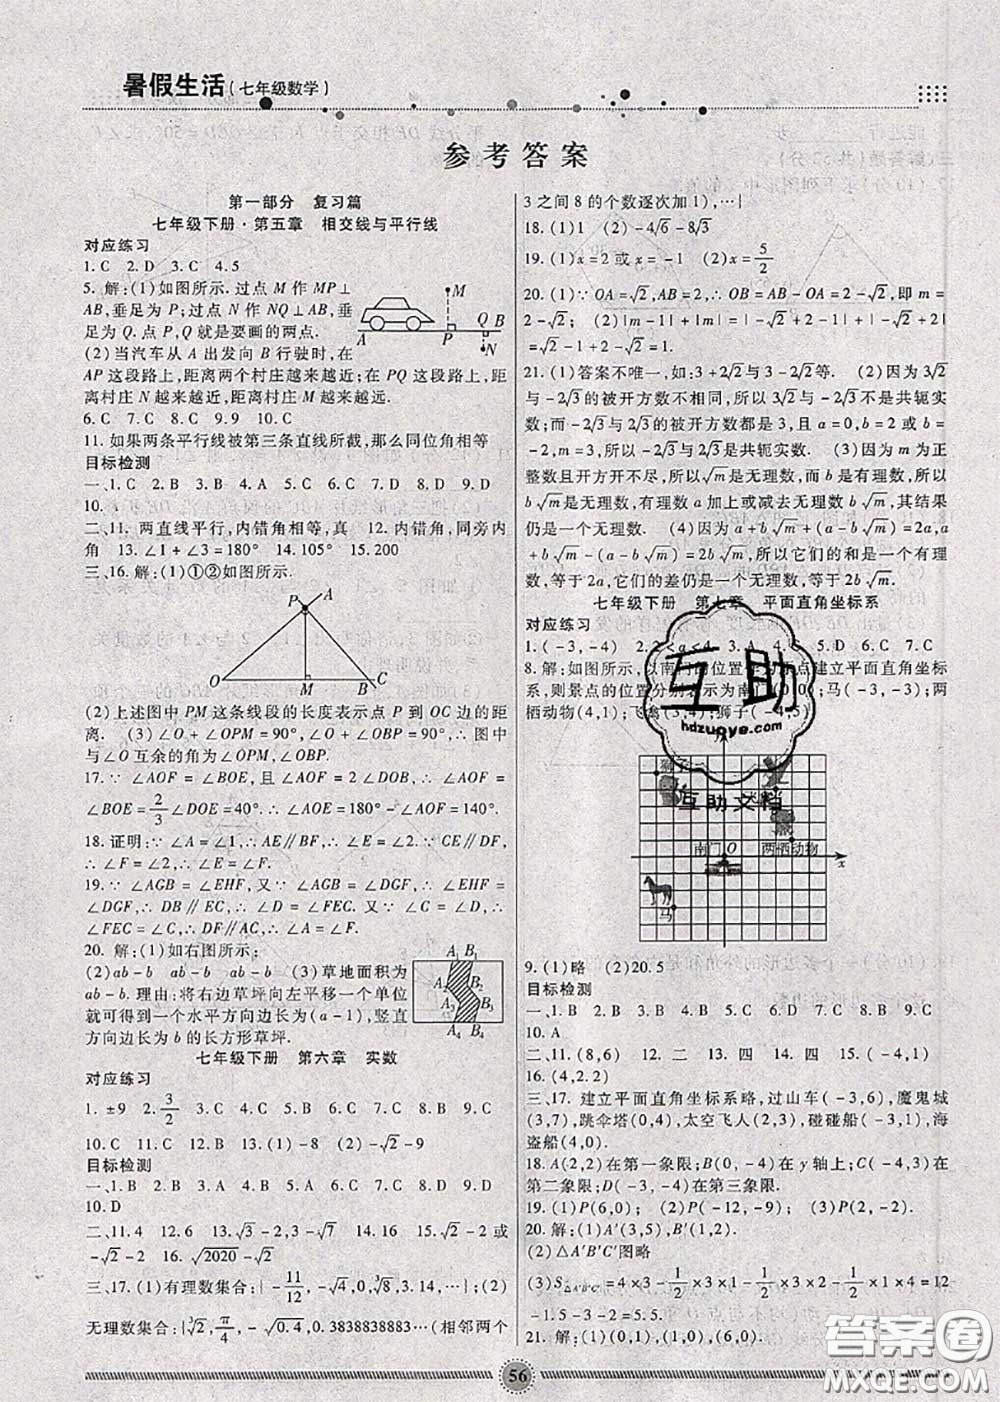 暑假生活(七年级数学)
参考答案
第一部分　复习篇
七年级下册·第五章　相交线与平行线
对应练习
1.C　2.D　3.C　4.5
5.解:(1)如图所示.过点M作MP⊥
AB,垂足为P;过点N作NQ⊥AB,垂
足为Q.点P,Q就是要画的两点.
(2)当汽车从A出发向B行驶时,在
AP这段路上,距离两个村庄越来越近;在PQ这段路上,距
离村庄N越来越近,距离村庄M越来越远.
M
A P Q B
N
6.C　7.C　8.C　9.9　10.C
11.如果两条平行线被第三条直线所截,那么同位角相等
目标检测
一、1.C　2.D　3.B　4.A　5.B　6.D　7.B　8.C　9.D
10.A
二、11.两直线平行,内错角相等,真　12.内错角,同旁内
角　13.∠1+∠3=180°　14.105°　15.200
三、16.解:(1)①②如图所示.
P A
O M B C
(2)上述图中PM这条线段的长度表示点P到OC边的距
离.　(3)∠O+∠OPM=90°,∠O+∠OBP=90°,∴图中
与∠O互余的角为∠OPM,∠OBP.
17.∵∠AOF=∠BOE,且∠AOF=2∠DOB,∴∠AOF=
∠BOE=2/3∠DOE=40°.∴∠AOE=180°-∠AOF=140°.
18.证明:∵∠A=∠1,∴AE∥BF,∴∠E=∠2.∵CE∥DF,
∴∠F=∠2,∴∠E=∠F.
19.∵∠AGB=∠EHF,又∵∠AGB=∠DGF,∴∠EHF=
∠DGF,∴DB∥EC,∴∠DBA=∠C,又∵∠C=∠D,∴∠D
=∠FEC,∴DF∥AC,∴∠A=∠F.
20.解:(1)如右图所示;
(2)ab-b　ab-b　ab-b　(3)草地面积为
ab-b.理由:将右边草坪向左平移一个单位
就可得到一个水平方向边长为(a-1),竖直
方向边长为b的长方形草坪.
A1 B1
A2 B2
A3 B3
A4 B4
七年级下册　第六章　实数
对应练习
1.±9　2.3/2　3.C　4.A　5.B　6.D　7.C　8.D　9.C
10.C　11.C　12.C　13.(1)-8　(2)-√2-9
目标检测
一、1.B　2.D　3.D　4.D　5.C　6.D　7.D　8.B　9.B
10.D
二、11.4　12.6　13.√3-2,3-√7　14.>　15.√2-2或
-√2-2　16.√2020-√2
三、17.(1)有理数集合:{-11/12,-√4,0,∛8,3.14,…};(2)
无理数集合:{∛2,π/4,-√0.4,0.3838838883…(相邻两个
3之间8的个数逐次加1),…}
18.(1)1　(2)-4√6-8√3
19.(1)x=2或x=-1　(2)x=5/2
20.(1)∵OA=√2,AB=2,∴OB=AB-OA=2-√2,即m=
2-√2;　(2)|m-1|+|m+√2|=|2-√2-1|+|2-√2+√2|
=√2-1+2=√2+1.
21.(1)答案不唯一,如:3+2√2与3-2√2等.　(2)因为3√2
与-2√3的被开方数不相同,所以3√2与-2√3不是共轭实
数;而-2√3与2√3的被开方数都是3,且a=0,b=2或a=0,b
=-2,所以-2√3与2√3是共轭实数.　(3)因为m为正
整数且开方开不尽,所以√m是无理数,而b是有理数,所以
b√m是无理数,有理数a加上或减去无理数b√m,其结果
仍是一个无理数.　(4)因为a+b√m+(a-b√m)=2a,a
+b√m-(a-b√m)=2b√m,所以它们的和是一个有理
数,等于2a,它们的差仍是一个无理数,等于2b√m.
七年级下册　第七章　平面直角坐标系
对应练习
1.(-3,-4)　2.2<a<4　3.A　4.C　5.D　6.C　7.C
8.解:如图所示,以南门的位置作为原点建立平面直角坐标
系,则景点的位置分别表示为南门(0,0);马(-3,-3);两
栖动物(4,1);飞禽(3,4);狮子(-4,5)
互助
hdzuoye.com
互助文档
南门 O 两栖动物
x
马
9.(1)略　(2)20.5
目标检测
一、1.D　2.B　3.B　4.B　5.D　6.C　7.B　8.C　9.C
10.A
二、11.(8,6)　12.二　13.四　14.四　15.(4,7)
16.(4,2.2)
三、17.建立平面直角坐标系略,过山车(-3,6),魔鬼城
(3,7),跳伞塔(0,4),太空飞人(2,5),碰碰船(4,3),海
盗船(4,0).
18.A(2,2)在第一象限;B(0,-4)在y轴上;C(-4,3)在
第二象限;D(-3,-4)在第三象限.
19.(1)P(0,6)　(2)P(-12,-9)　(3)P(2,-2).
20.解:(1)A′(3,5),B′(1,2).
(2)△A′B′C′图略
(3)S△A′B′C′=4×3-1/2×3×1-1/2×3×2-1/2×1×4=12
-1.5-3-2=5.5.
21.解:(1)(0,1),(1,0),(6,0).
56
答案圈
MXQE.COM